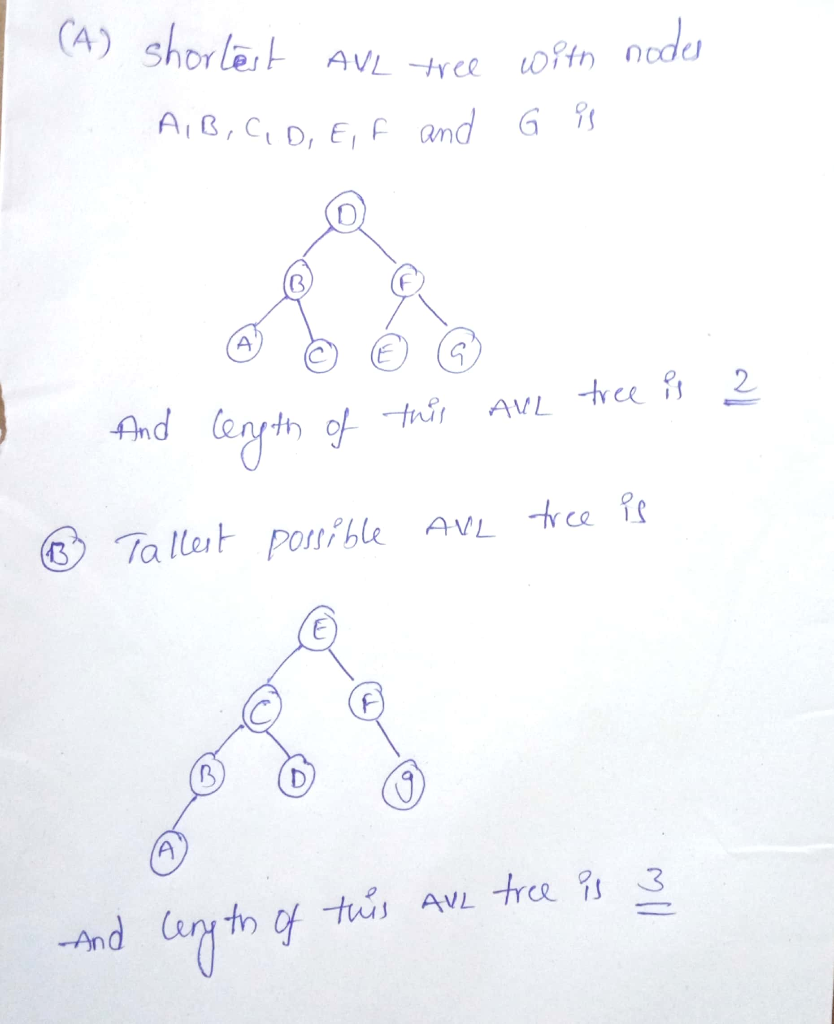 (A) shortest AVL tree with nodes
A, B, C, D, E, F and G is
D
B F
A C E G
And length of this AVL tree is 2
(B) Tallest possible AVL tree is
E
C F
B D g
A
And length of this AVL tree is 3